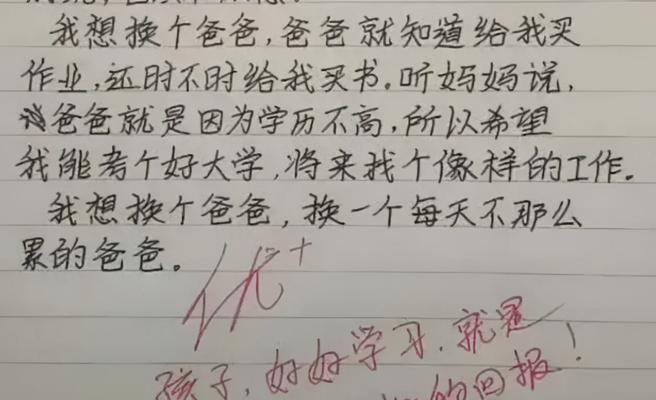 我想换个爸爸,爸爸就知道给我买
作业,还时不时给我买书。听妈妈说,
爸爸就是因为学历不高,所以希望
我能考个好大学,将来找个像样的工作。
我想换个爸爸,换一个每天不那么
累的爸爸。
优+
孩子,好好学习,就是
的回报!